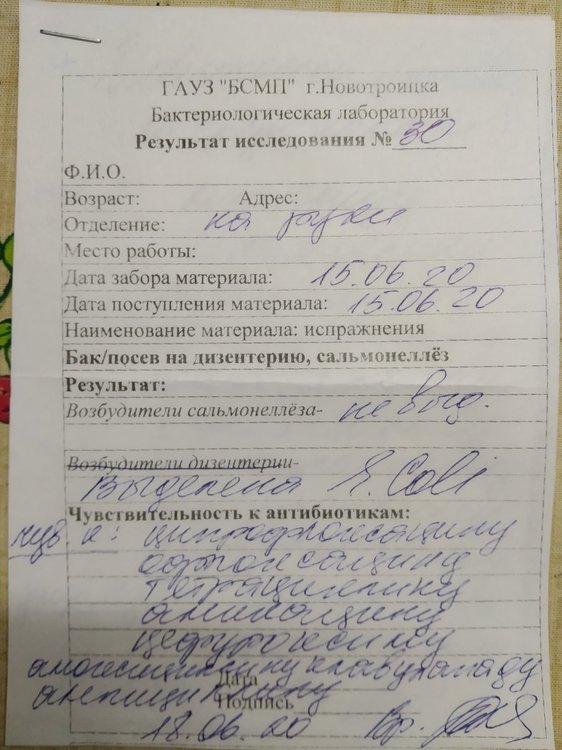 ГАУЗ "БСМП" г.Новотроицка
Бактериологическая лаборатория
Результат исследования № 30
Ф.И.О.
Возраст: Адрес:
Отделение: на руки
Место работы:
Дата забора материала: 15.06.20
Дата поступления материала: 15.06.20
Наименование материала: испражнения
Бак/посев на дизентерию, сальмонеллёз
Результат:
Возбудители сальмонеллёза- не выд.
Возбудители дизентерии-
Выделена E. Coli
Чувствительность к антибиотикам:
чув. к: ципрофлоксацину
офлоксацину
тетрациклину
амикацину
цефуроксиму
амоксициллину клавуланаду
Дата
ампициллину
Подпись
18.06.20 Вр.